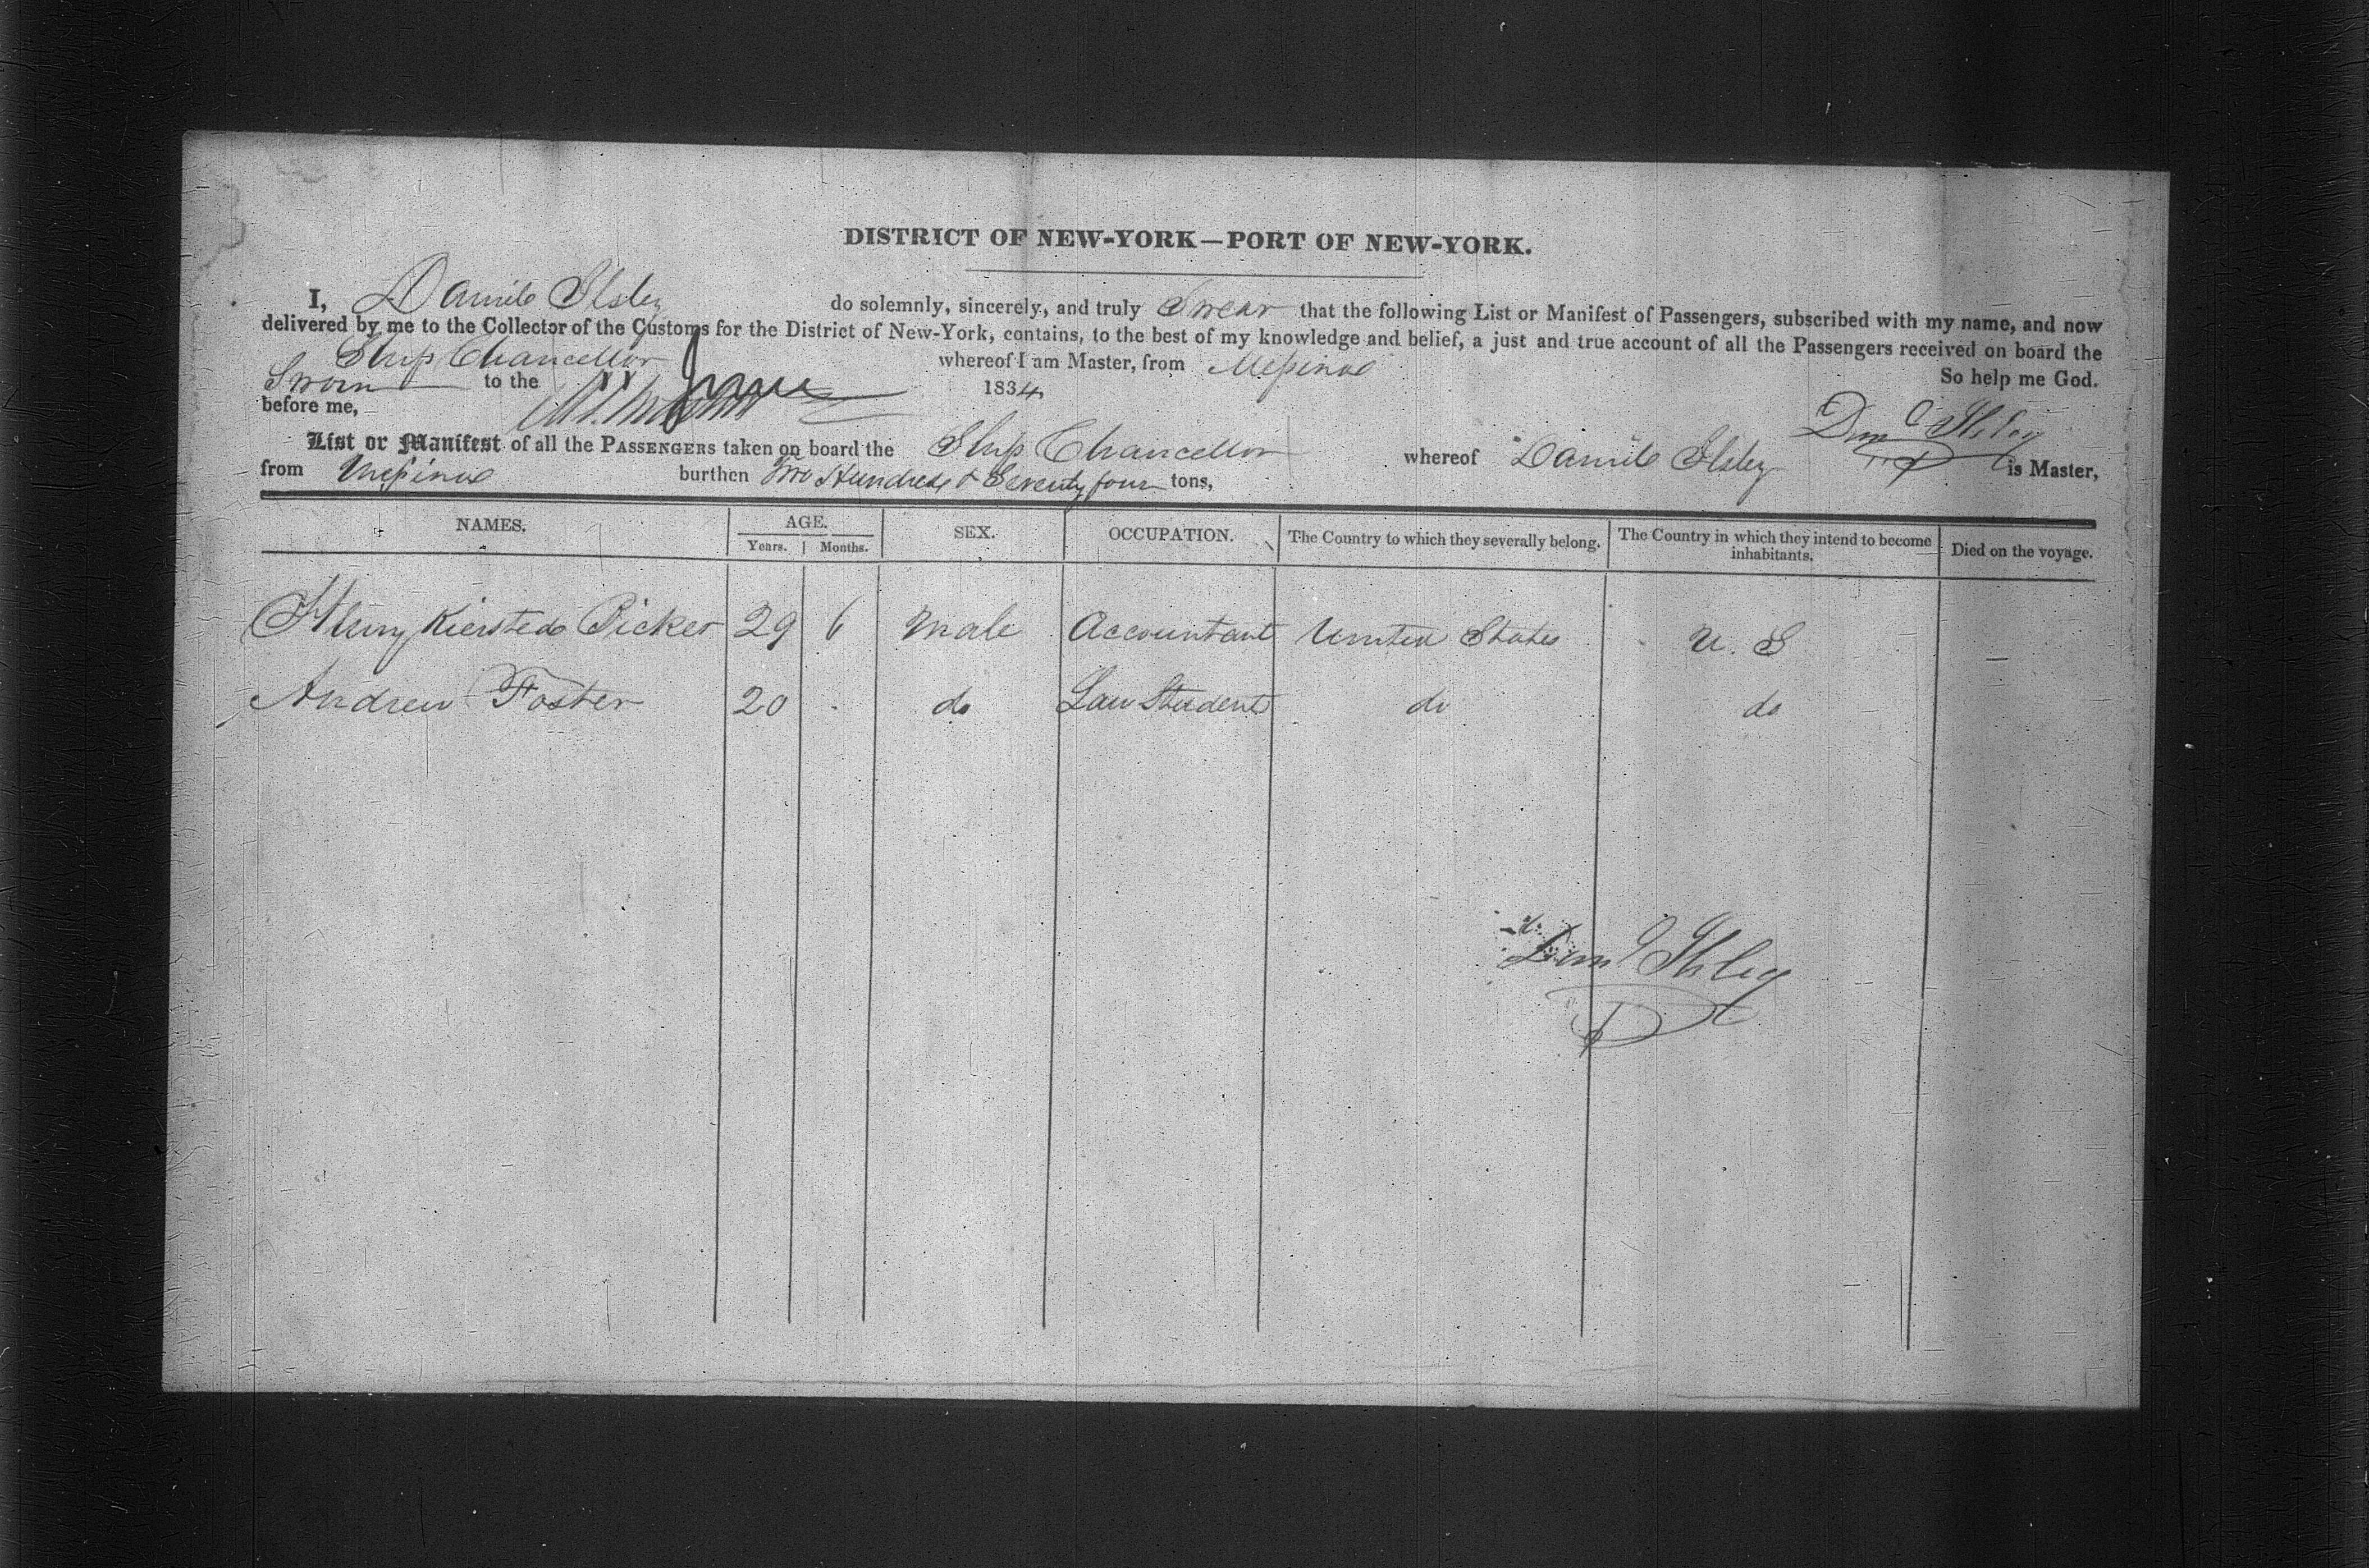 DISTRICT OF NEW-YORK—PORT OF NEW-YORK.
I, Daniel Ilsley do solemnly, sincerely, and truly Swear that the following List or Manifest of Passengers, subscribed with my name, and now
delivered by me to the Collector of the Customs for the District of New-York, contains, to the best of my knowledge and belief, a just and true account of all the Passengers received on board the
Ship Chancellor whereof I am Master, from Messina
Sworn to the June 1834, So help me God.
before me, Danl Ilsley
List or Manifest of all the PASSENGERS taken on board the Ship Chancellor whereof Daniel Ilsley is Master,
from Messina burthen Two Hundred & Seventy four tons,
NAMES. AGE. SEX. OCCUPATION. The Country to which they severally belong. The Country in which they intend to become inhabitants. Died on the voyage.
Years. Months.
Henry Kiersted Picker 29 6 Male Accountant United States U. S —
Andrew Foster 20 . do Law Student do do
Danl Ilsley